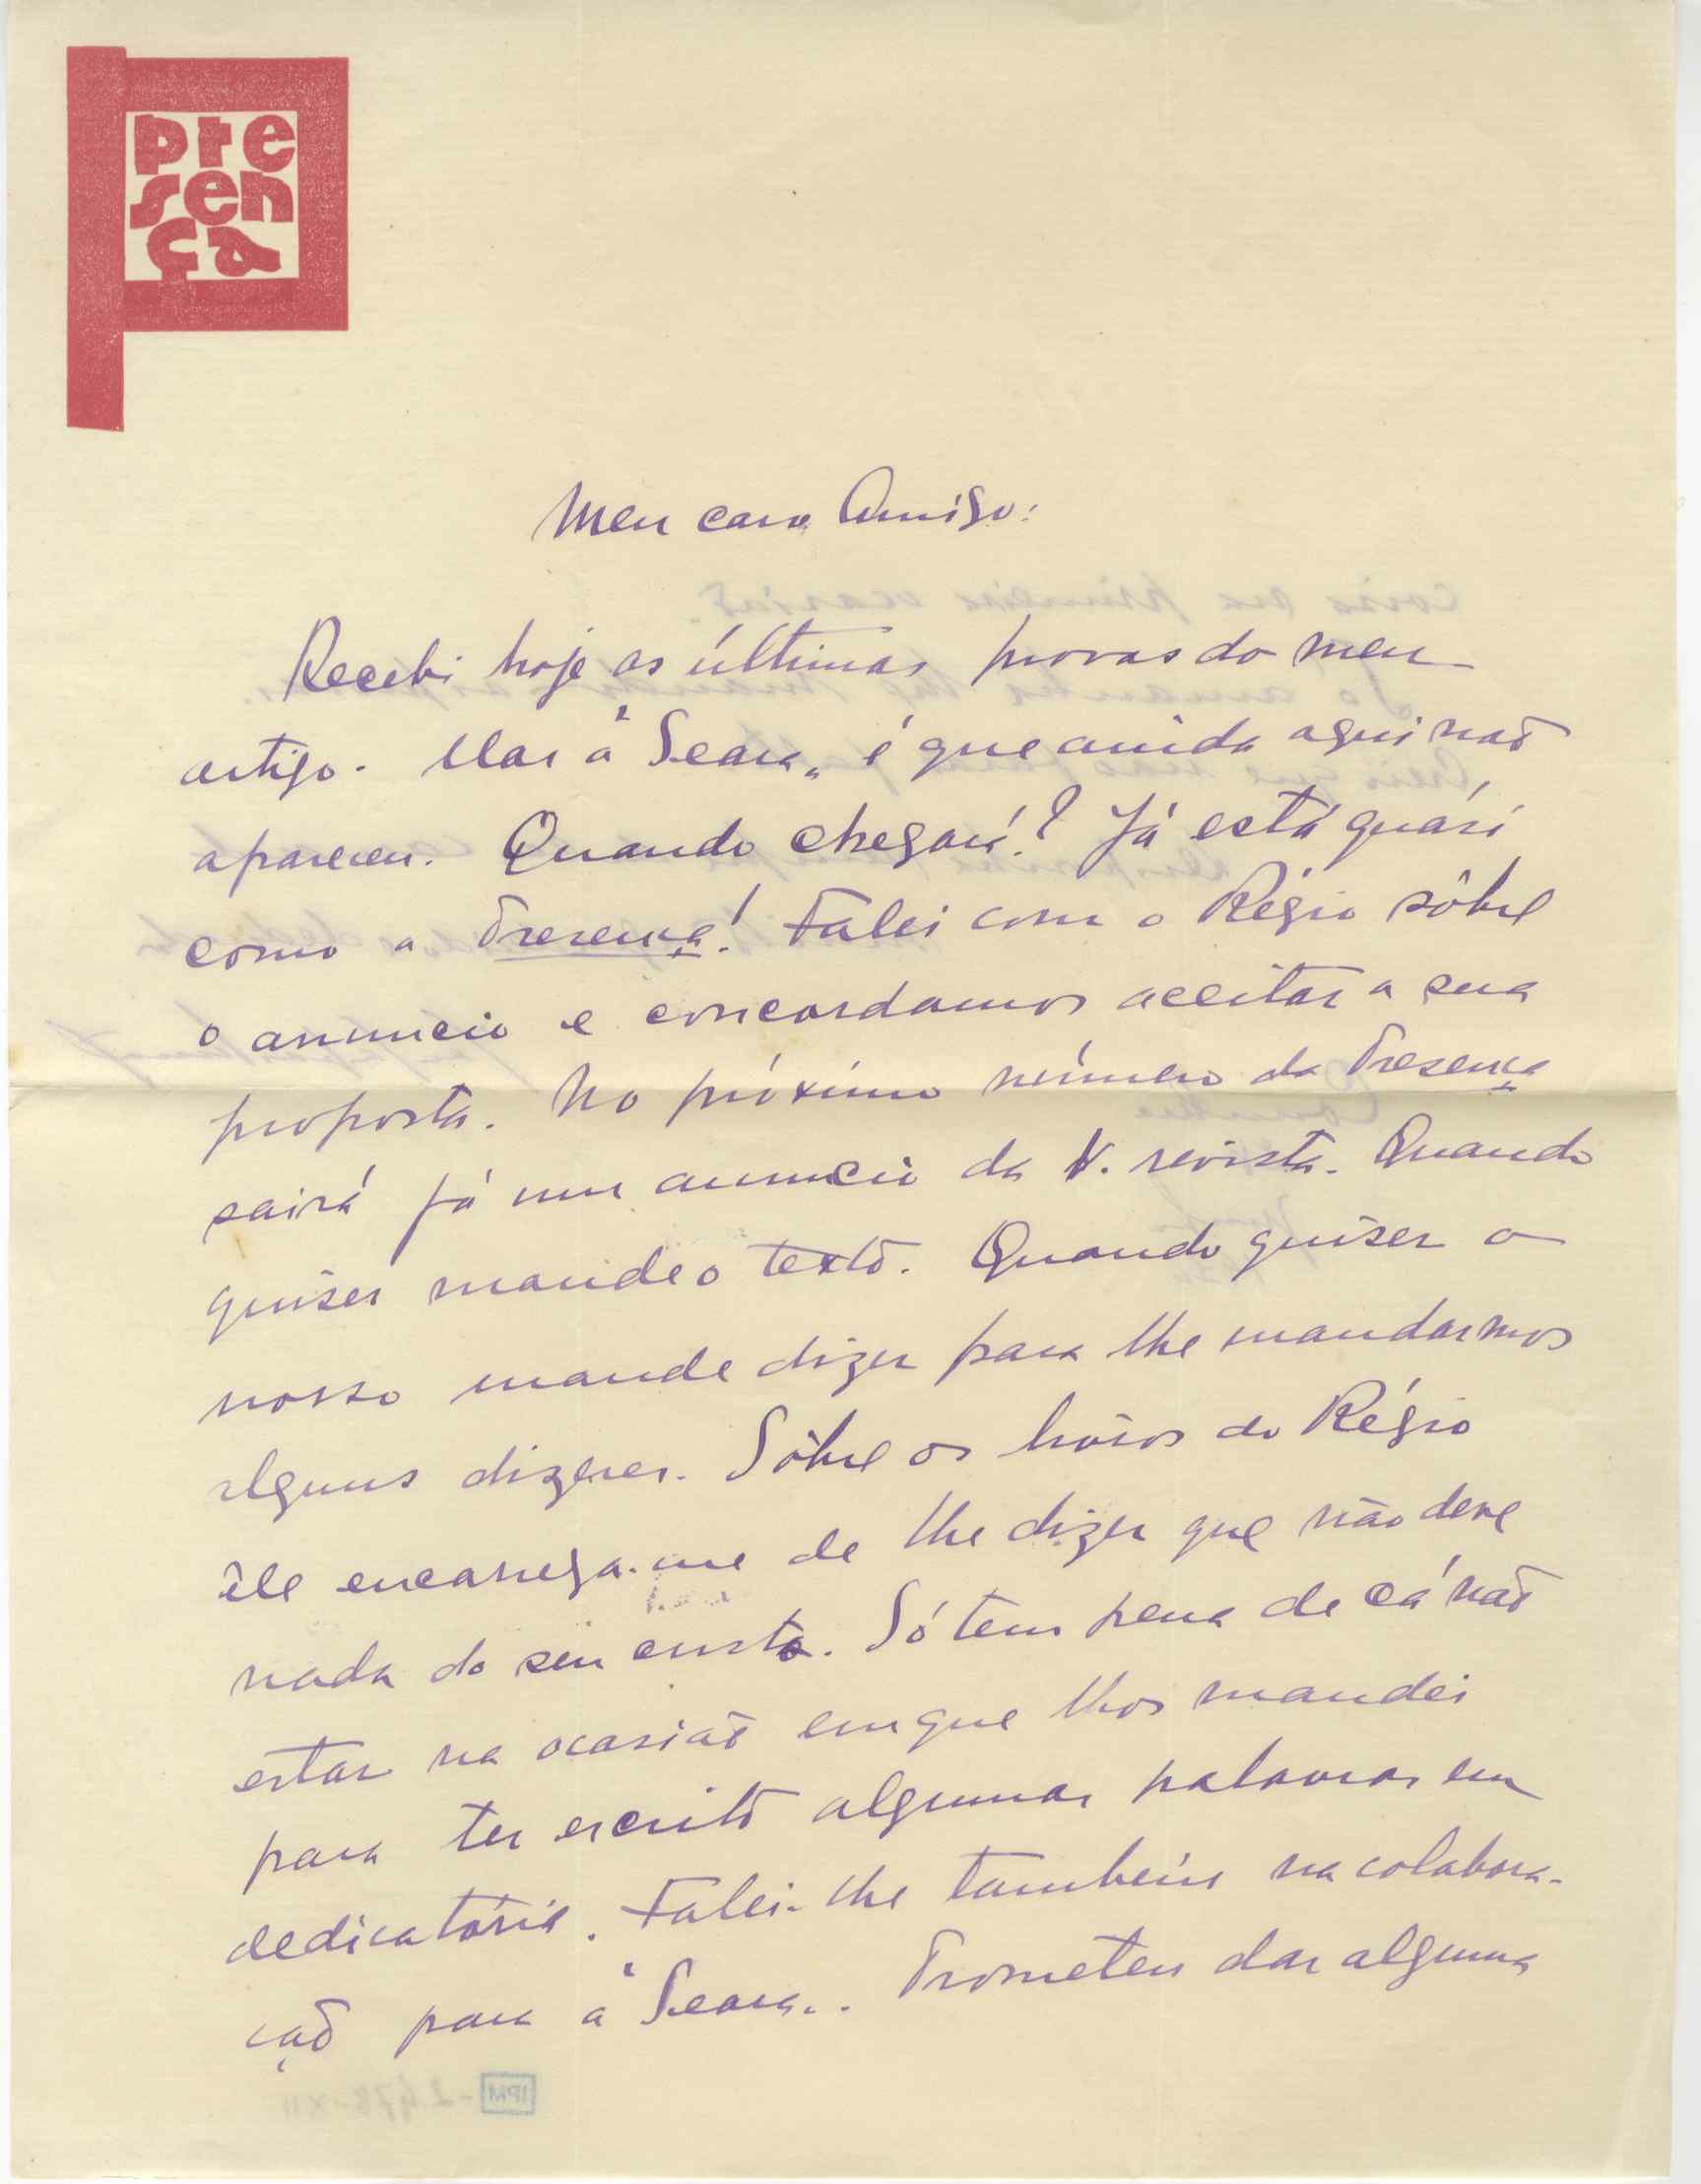 pre
sen
ça
Meu caro Amigo:
Recebi hoje as últimas provas do meu
artigo. Mas a "Seara" é que ainda aqui não
apareceu. Quando chegará? Já está quási
como a Presença! Falei com o Régio sôbre
o anuncio e concordamos aceitar a sua
proposta. No próximo número da Presença
sairá já um anuncio da V. revista. Quando
quiser mande o texto. Quando quiser o
nosso mande dizer para lhe mandarmos
alguns dizeres. Sôbre os livros do Régio
êle encarrega-me de lhe dizer que não deve
nada do seu custo. Só tem pena de cá não
estar na ocasião em que lhos mandei
para ter escrito algumas palavras em
dedicatória. Falei-lhe também na colabora-
ção para a "Seara". Prometeu dar alguma